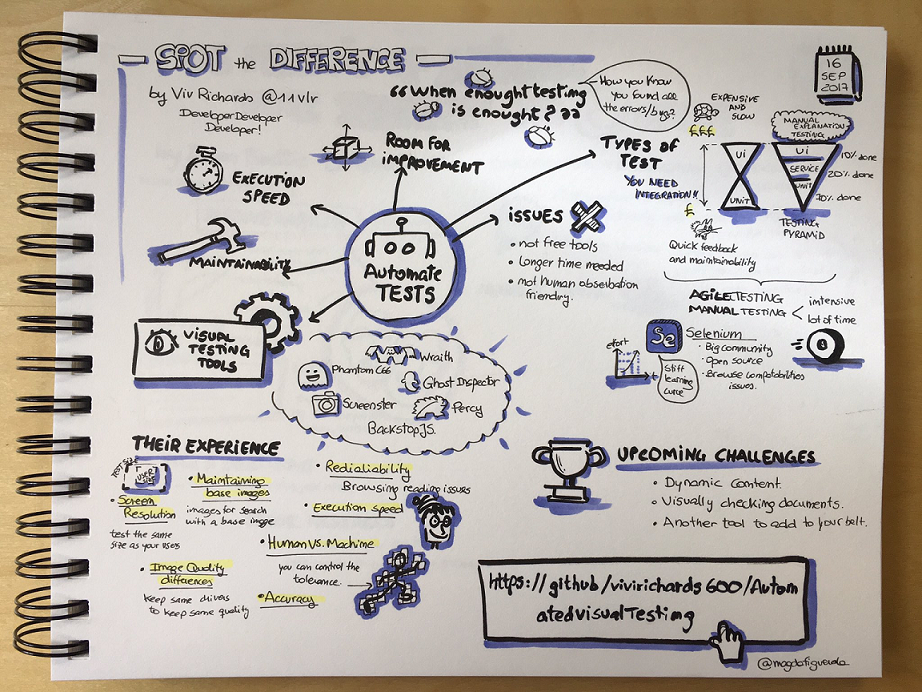 SPOT the DIFFERENCE
by Viv Richards @11vlr
DeveloperDeveloper
Developer!
16
SEP
2017
"When enought testing
is enought?"
How you know
you found all
the errors/bug?
EXECUTION
SPEED
ROOM FOR
IMPROVEMENT
MAINTAINABILITY
Automate
TESTS
VISUAL
TESTING
TOOLS
TYPES OF
TEST
YOU NEED
INTEGRATION!!
EXPENSIVE
AND
SLOW
£££
£
UI
UNIT
MANUAL
EXPLANATION
TESTING
UI
SERVICE
UNIT
10% done
20% done
70% done
TESTING
PYRAMID
Quick feedback
and maintainability
ISSUES
• not free tools
• Longer time needed
• not human observation
friending.
AGILE TESTING
MANUAL TESTING
intensive
lot of time
effort
t
Se
Stiff
learning
curve
Selenium
• Big community
• Open source
• Browse compatabilities
issues.
Wraith
Phantom C66
Ghost Inspector
Screenster
Percy
BackstopJS.
THEIR EXPERIENCE
TEST SIZE
USER
• Screen
Resolution
test the same
size as your uses
• Maintaining
base images
images for search
with a base image
• Image Quality
differences
keep same drivers
to keep same quality
• Redialiability
Browsing reading issues
• Execution speed
• Human VS. Machine
you can control the
tolerance.
• Accuracy
UPCOMING CHALLENGES
• Dynamic Content.
• Visually checking documents.
• Another tool to add to your belt.
https://github/vivirichards600/Autom
atedvisualTesting
@magdafigueroa